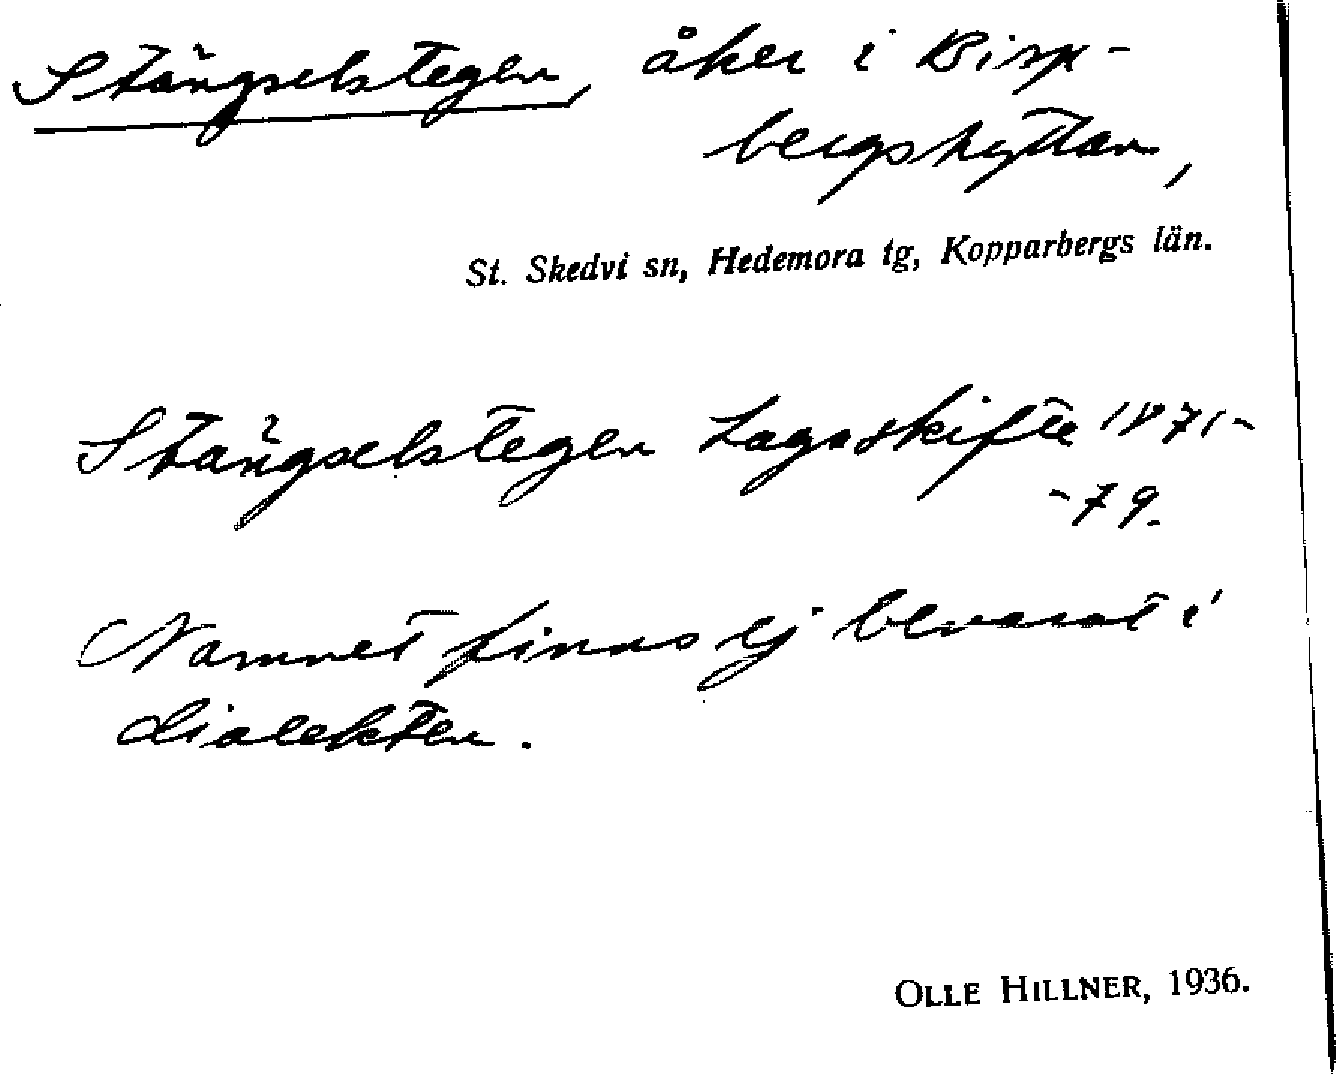 Stängselstegen, åker i Bisp-
bergshyttan,
St. Skedvi sn, Hedemora tg, Kopparbergs län.
Stängselstegen Lagaskifte 1871-
-79.
Namnet finns ej bevarat i
dialekten.
OLLE HILLNER, 1936.